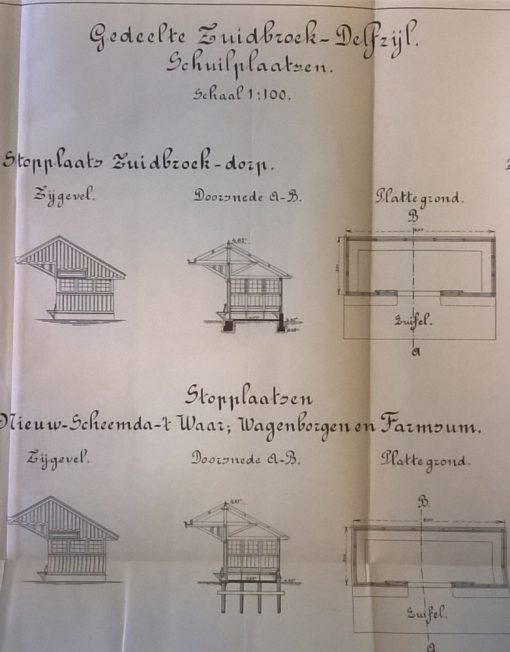 Gedeelte Zuidbroek-Delfzijl.
Schuilplaatsen.
Schaal 1:100.
Stopplaats Zuidbroek-dorp.
Zijgevel.
Doorsnede A-B.
Plattegrond.
B
Luifel.
A
Stopplaatsen
Nieuw-Scheemda-'t Waar, Wagenborgen en Farmsum.
Zijgevel.
Doorsnede A-B.
Plattegrond.
B.
Luifel.
A